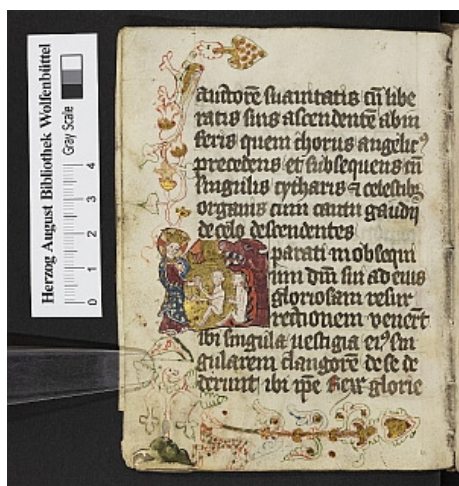 Herzog August Bibliothek Wolfenbüttel
Gray Scale
0 1 2 3 4
auctorē suauitatis cū libe
ratis suis ascendentē ab in
feris quem chorus angelic⁹
precedens et subsequens cū
singulis cytharis ⁊ celestib⁹
organis cum cantu gaudij
de celo descendentes
parati in obsequi
um dn̄i sui ad eius
gloriosam resur
rectionem venert̄
ibi singula uestigia ei⁹ sin
gularem clangorē de se de
derunt ibi ip̄e Rex glorie